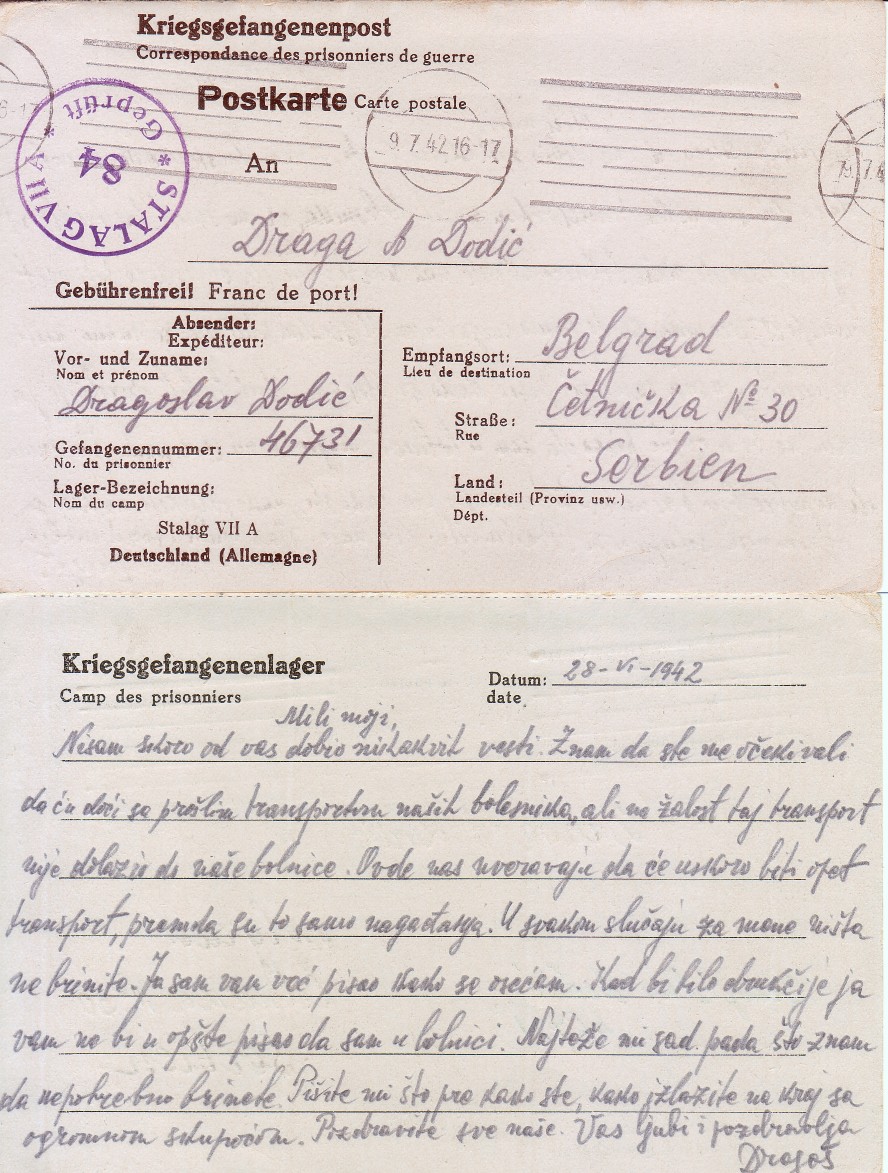 Kriegsgefangenenpost
Correspondance des prisonniers de guerre
Postkarte Carte postale
STALAG VII A
84
* Geprüft *
9.7.42 16-17
An
Draga A Dodić
Gebührenfrei! Franc de port!
Absender:
Expéditeur:
Vor- und Zuname:
Nom et prénom
Dragoslav Dodić
Gefangenennummer: 46731
No. du prisonnier
Lager-Bezeichnung:
Nom du camp
Stalag VII A
Deutschland (Allemagne)
Empfangsort: Belgrad
Lieu de destination
Straße: Četnička № 30
Rue
Land: Serbien
Landesteil (Provinz usw.)
Dépt.
Kriegsgefangenenlager
Camp des prisonniers
Datum: 28-VI-1942
date
Mili moji,
Nisam skoro od vas dobio nikakvih vesti. Znam da ste me očekivali
da ću doći sa prošlim transportom naših bolesnika, ali na žalost taj transport
nije dolazio do naše bolnice. Ovde nas uveravaju da će uskoro biti opet
transport, premda su to samo nagađanja. U svakom slučaju za mene ništa
ne brinite. Ja sam vam već pisao kako se osećam. Kad bi bilo drukčije ja
vam ne bi u opšte pisao da sam u bolnici. Najteže mi sad pada što znam
da nepotrebno brinete. Pišite mi što pre kako ste, kako izlazite na kraj sa
ogromnom skupoćom. Pozdravite sve naše. Vas ljubi i pozdravlja
Dragoš